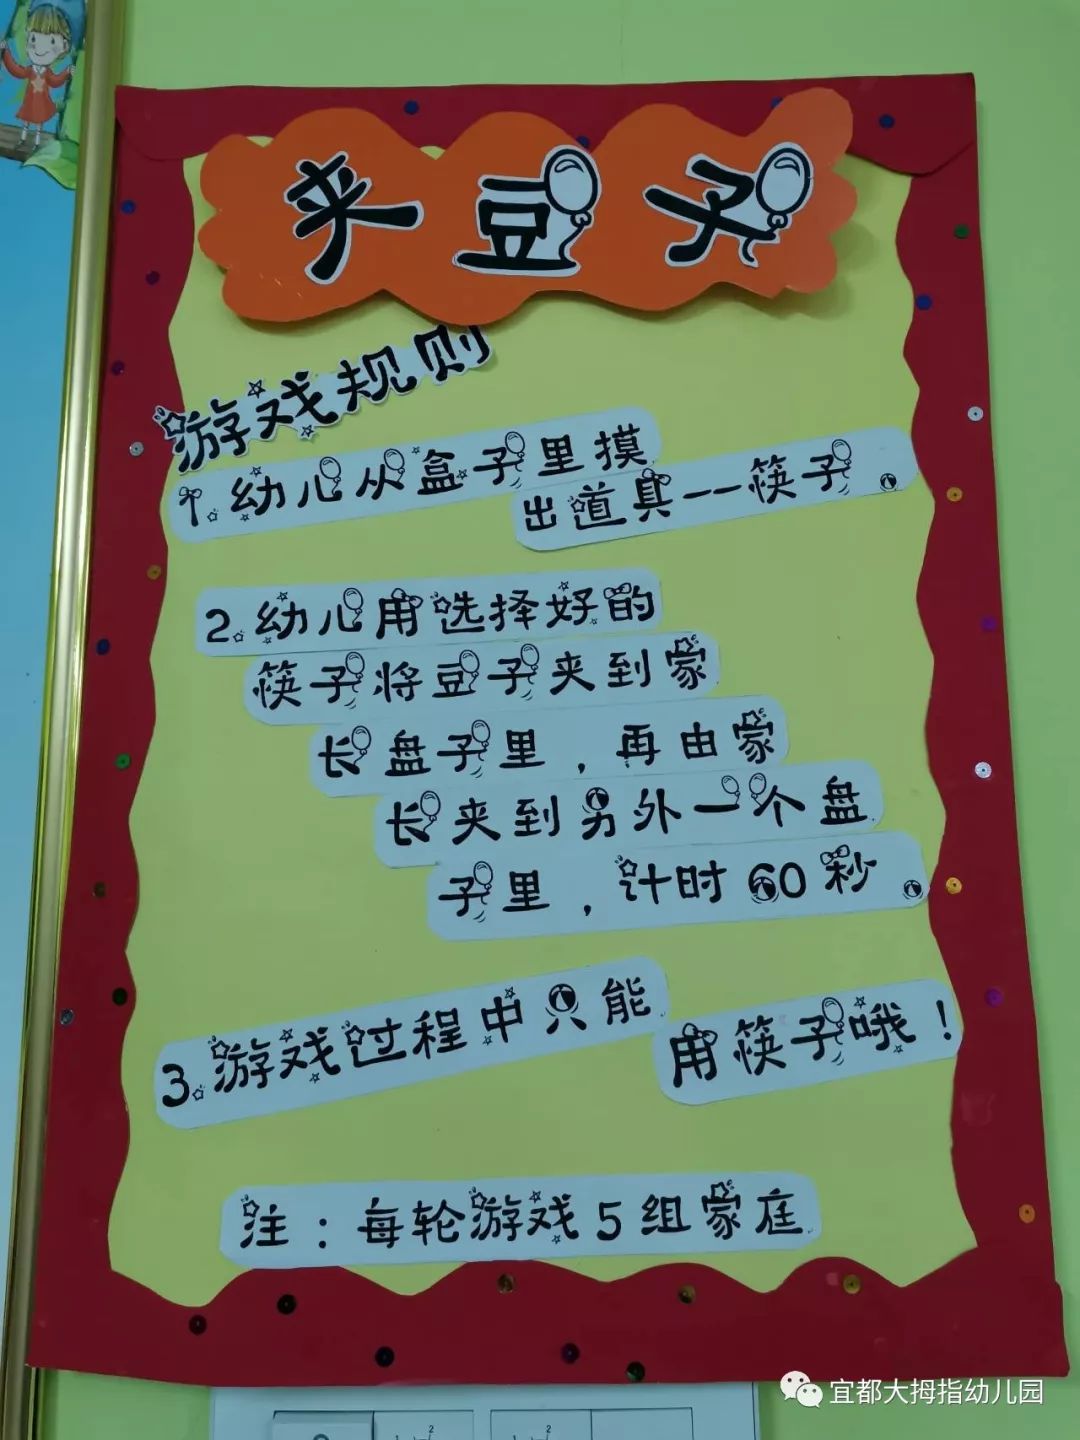 夹豆子
游戏规则
1.幼儿从盒子里摸
出道具——筷子。
2.幼儿用选择好的
筷子将豆子夹到家
长盘子里，再由家
长夹到另外一个盘
子里，计时60秒。
3.游戏过程中只能
用筷子哦！
注：每轮游戏5组家庭
宜都大拇指幼儿园